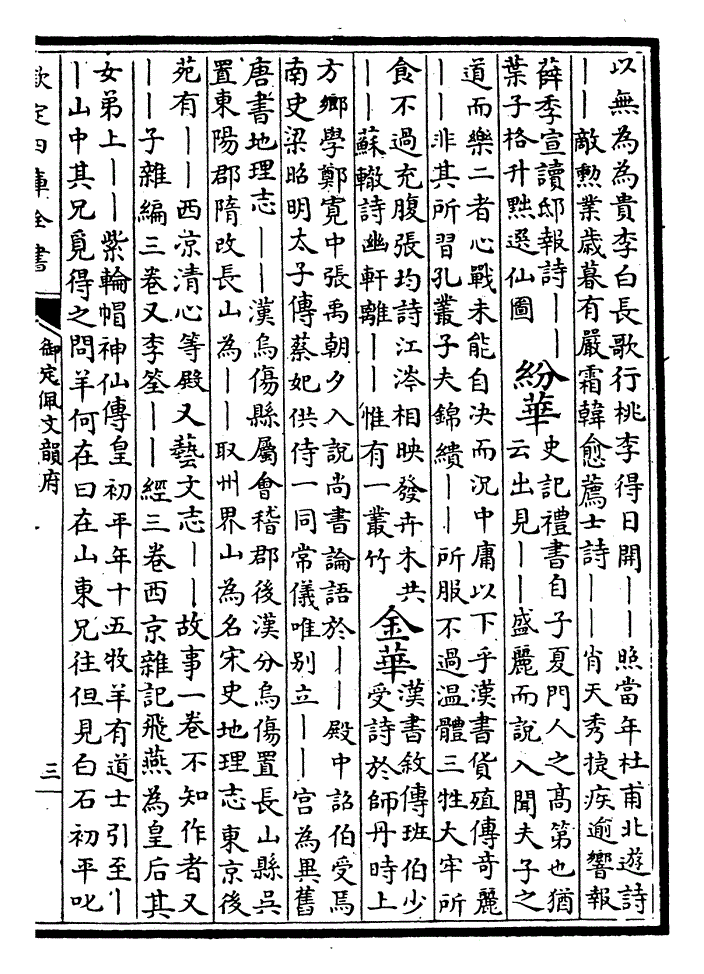 以無為為貴李白長歌行桃李得日開丨丨照當年杜甫北遊詩
丨丨敵勲業歳暮有嚴霜韓愈薦士詩丨丨肖天秀捷疾逾響報
薛季宣讀邸報詩丨丨
葉子格升黜選仙圖
紛華
史記禮書自子夏門人之髙第也猶
云出見丨丨盛麗而說入聞夫子之
道而樂二者心戰未能自决而況中庸以下乎漢書貨殖傳竒麗
丨丨非其所習孔叢子夫錦繢丨丨所服不過温體三牲大牢所
食不過充腹張均詩江涔相映發卉木共
丨丨蘇轍詩幽軒離丨丨惟有一叢竹
金華
漢書敘傳班伯少
受詩於師丹時上
方鄉學鄭寛中張禹朝夕入說尚書論語於丨丨殿中詔伯受焉
南史梁昭明太子傳蔡妃供侍一同常儀唯别立丨丨宫為異舊
唐書地理志丨丨漢烏傷縣屬會稽郡後漢分烏傷置長山縣吳
置東陽郡隋改長山為丨丨取州界山為名宋史地理志東京後
苑有丨丨西凉清心等殿又藝文志丨丨故事一卷不知作者又
丨丨子雜編三卷又李筌丨丨經三卷西京雜記飛燕為皇后其
女弟上丨丨紫輪帽神仙傳皇初平年十五牧羊有道士引至丨
丨山中其兄覓得之問羊何在曰在山東兄往但見白石初平叱
欽定四庫全書
御定佩文韻府
三